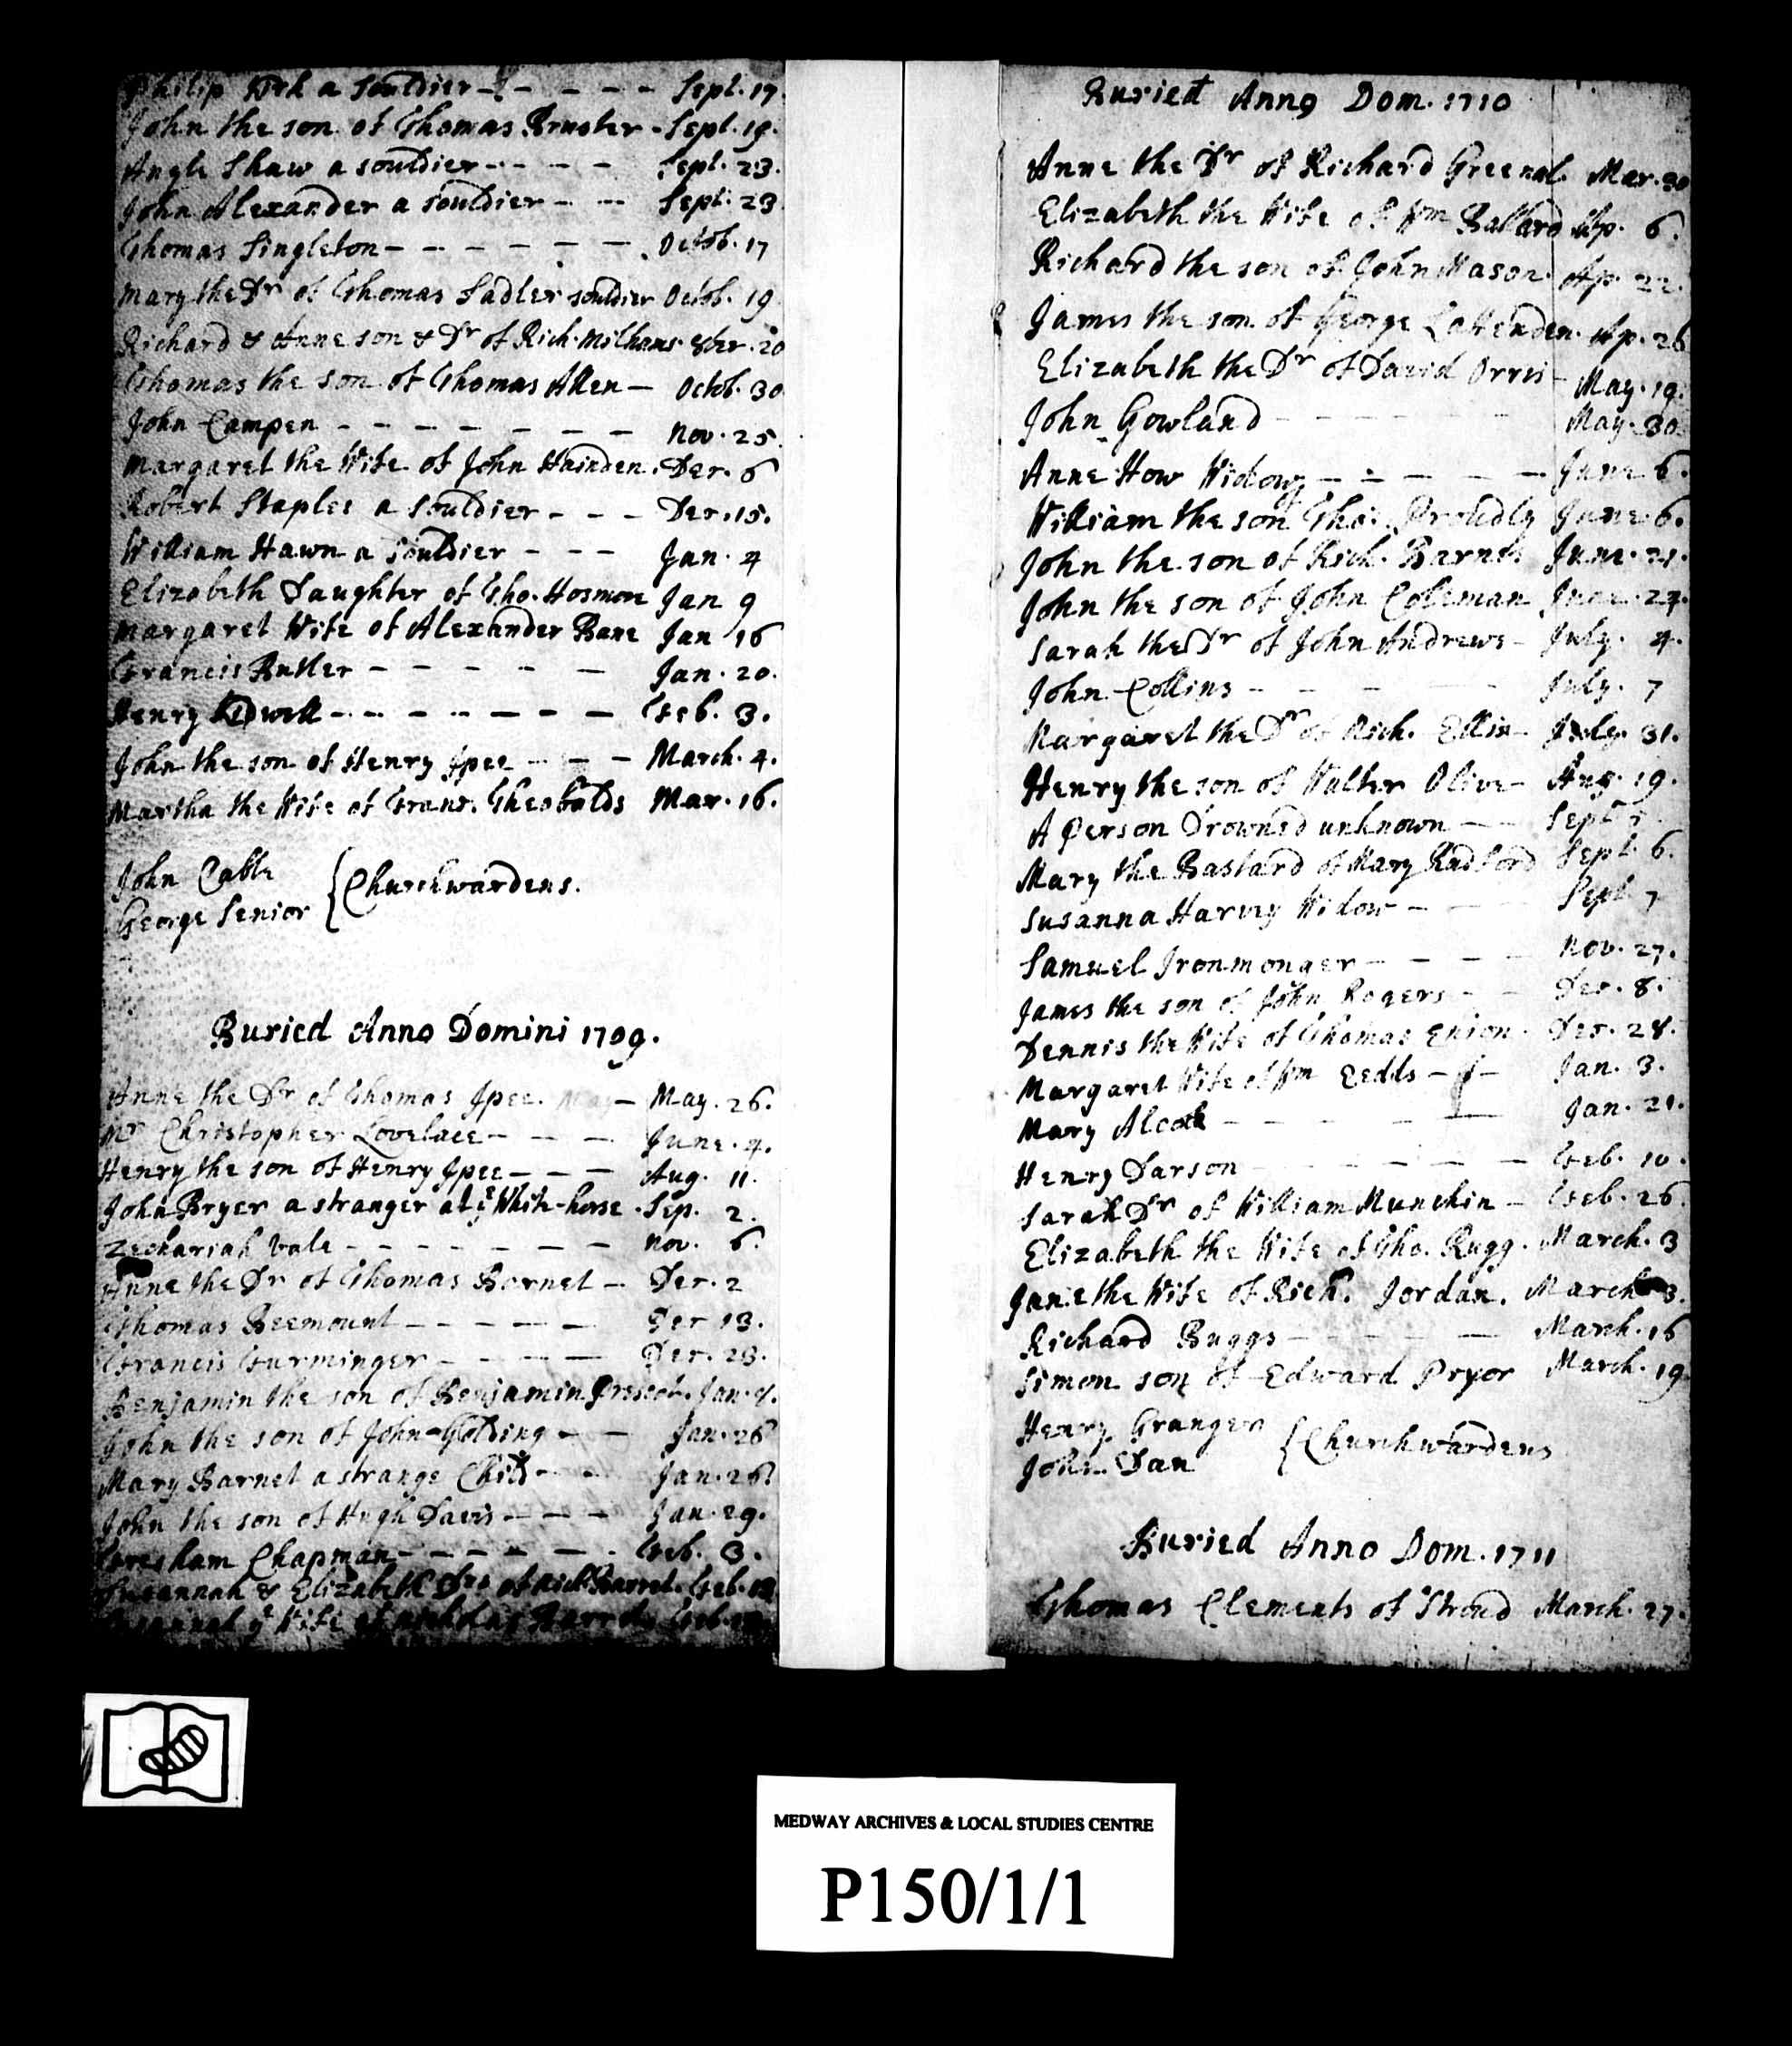 Philip a souldier - - - - Sept. 17.
John the son of Thomas Bruster - Sept. 19.
Angle Shaw a souldier - - - - Sept. 23.
John Alexander a souldier - - - Sept. 23
Thomas Singleton - - - - - - Octob. 17
Mary the Dr of Thomas Sadler souldier Octob. 19
Richard & Anne son & Dr of Rich. Milhaus. 8ber. 20
Thomas the son of Thomas Allen - Octob. 30
John Campen - - - - - - - Nov. 25.
Margaret the Wife of John Hainden. Dec. 6
Robert Staples a souldier - - - Dec. 15.
William Hawn a souldier - - - Jan. 4
Elizabeth Daughter of Tho. Hosmore Jan 9
Margaret Wife of Alexander Bane Jan 16
Francis Butler - - - - - Jan. 20.
Henry Kidwell - - - - - - - Feb. 3.
John the son of Henry Jpee - - - March. 4.
Martha the Wife of Franc. Theobalds Mar. 16.
John Cable
George Senior { Churchwardens.
Buried Anno Domini 1709.
Anne the Dr of Thomas Jpee. - May. 26.
Mr Christopher Lovelace - - - June. 4.
Henry the son of Henry Jpee - - - Aug. 11.
John Bryer a stranger at ye White-horse . Sep. 2.
Zechariah Vale - - - - - - - Nov. 6.
Anne the Dr of Thomas Barnet - Dec. 2
Thomas Beemount - - - - - Dec 13.
Francis Furminger - - - - Dec. 23.
Benjamin the son of Benjamin Jan. 4.
John the son of John Golding - - Jan. 26
Mary Barnet a strange Child - - Jan. 26.
John the son of Hugh Davis - - - Jan. 29.
Gresham Chapman - - - - - - Feb. 3.
Susannah & Elizabeth Drs of Rich. Barret. Feb.
ye Wife of Nicholas Feb.
Buried Anno Dom. 1710
Anne the Dr of Richard Greenal. Mar. 30
Elizabeth the Wife of Wm Ballard Ap. 6.
Richard the son of John Mason. Ap. 22.
James the son of George Lattenden. Ap. 26
Elizabeth the Dr of David Orris - May. 19.
John Gowland - - - - - - May. 30.
Anne How Widow - - - - - June 6.
William the son Tho. Proudly June. 6.
John the son of Rich. Barnes June. 21.
John the son of John Coleman June. 27.
Sarah the Dr of John Andrews - July. 4.
John Collins - - - - - July. 7
Margaret the Dr of Rich. Ellis - July. 31.
Henry the son of Walter Olive - Aug. 19.
A Person Drowned unknown - - Sept
Mary the Bastard of Mary Radford Sept. 6.
Susanna Harvey Widow - - - Sept. 7
Samuel Ironmonger - - - - Nov. 27.
James the son of John Rogers - - Dec. 8.
Dennis the Wife of Thomas Enion. Dec. 28.
Margaret Wife of Wm Eedds - - Jan. 3.
Mary Alcock - - - - - - Jan. 21.
Henry Darson - - - - - - Feb. 10.
Sarah Dr of William Munchin - Feb. 26
Elizabeth the Wife of Tho. Rugg. March. 3
Jane the Wife of Rich. Jordan. March 3.
Richard Buggs - - - - - March. 16
Simon son of Edward Pryor March. 19
Henry Granger
John Dan { Churchwardens
Buried Anno Dom. 1711
Thomas Clements of Stroud March. 27.
MEDWAY ARCHIVES & LOCAL STUDIES CENTRE
P150/1/1